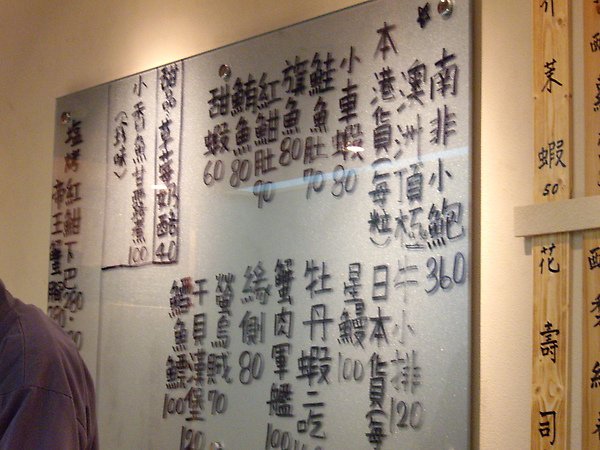 南非小鮑 360
澳洲頂極牛小排 120
本港貨(每粒)
小車蝦 80
鮭魚肚 70
旗魚 80
紅魽肚 90
鮪魚 80
甜蝦 60
日本貨(每
星鰻 100
牡丹蝦二吃
蟹肉軍艦 100
緣側 80
螢烏賊 70
干貝漢堡 120
鱈魚 100
甜品草莓奶酪 40
小香魚甘露煮 100
(珍味)
塩烤紅魽下巴
帝王蟹腳
茉蝦 50
花壽司